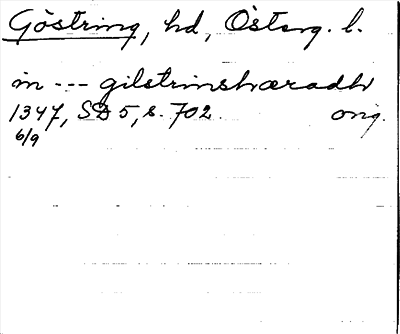 Göstring, hd, Österg. l.
in --- gilstrinshæradh
1347, SD 5, s. 702 orig.
6/9